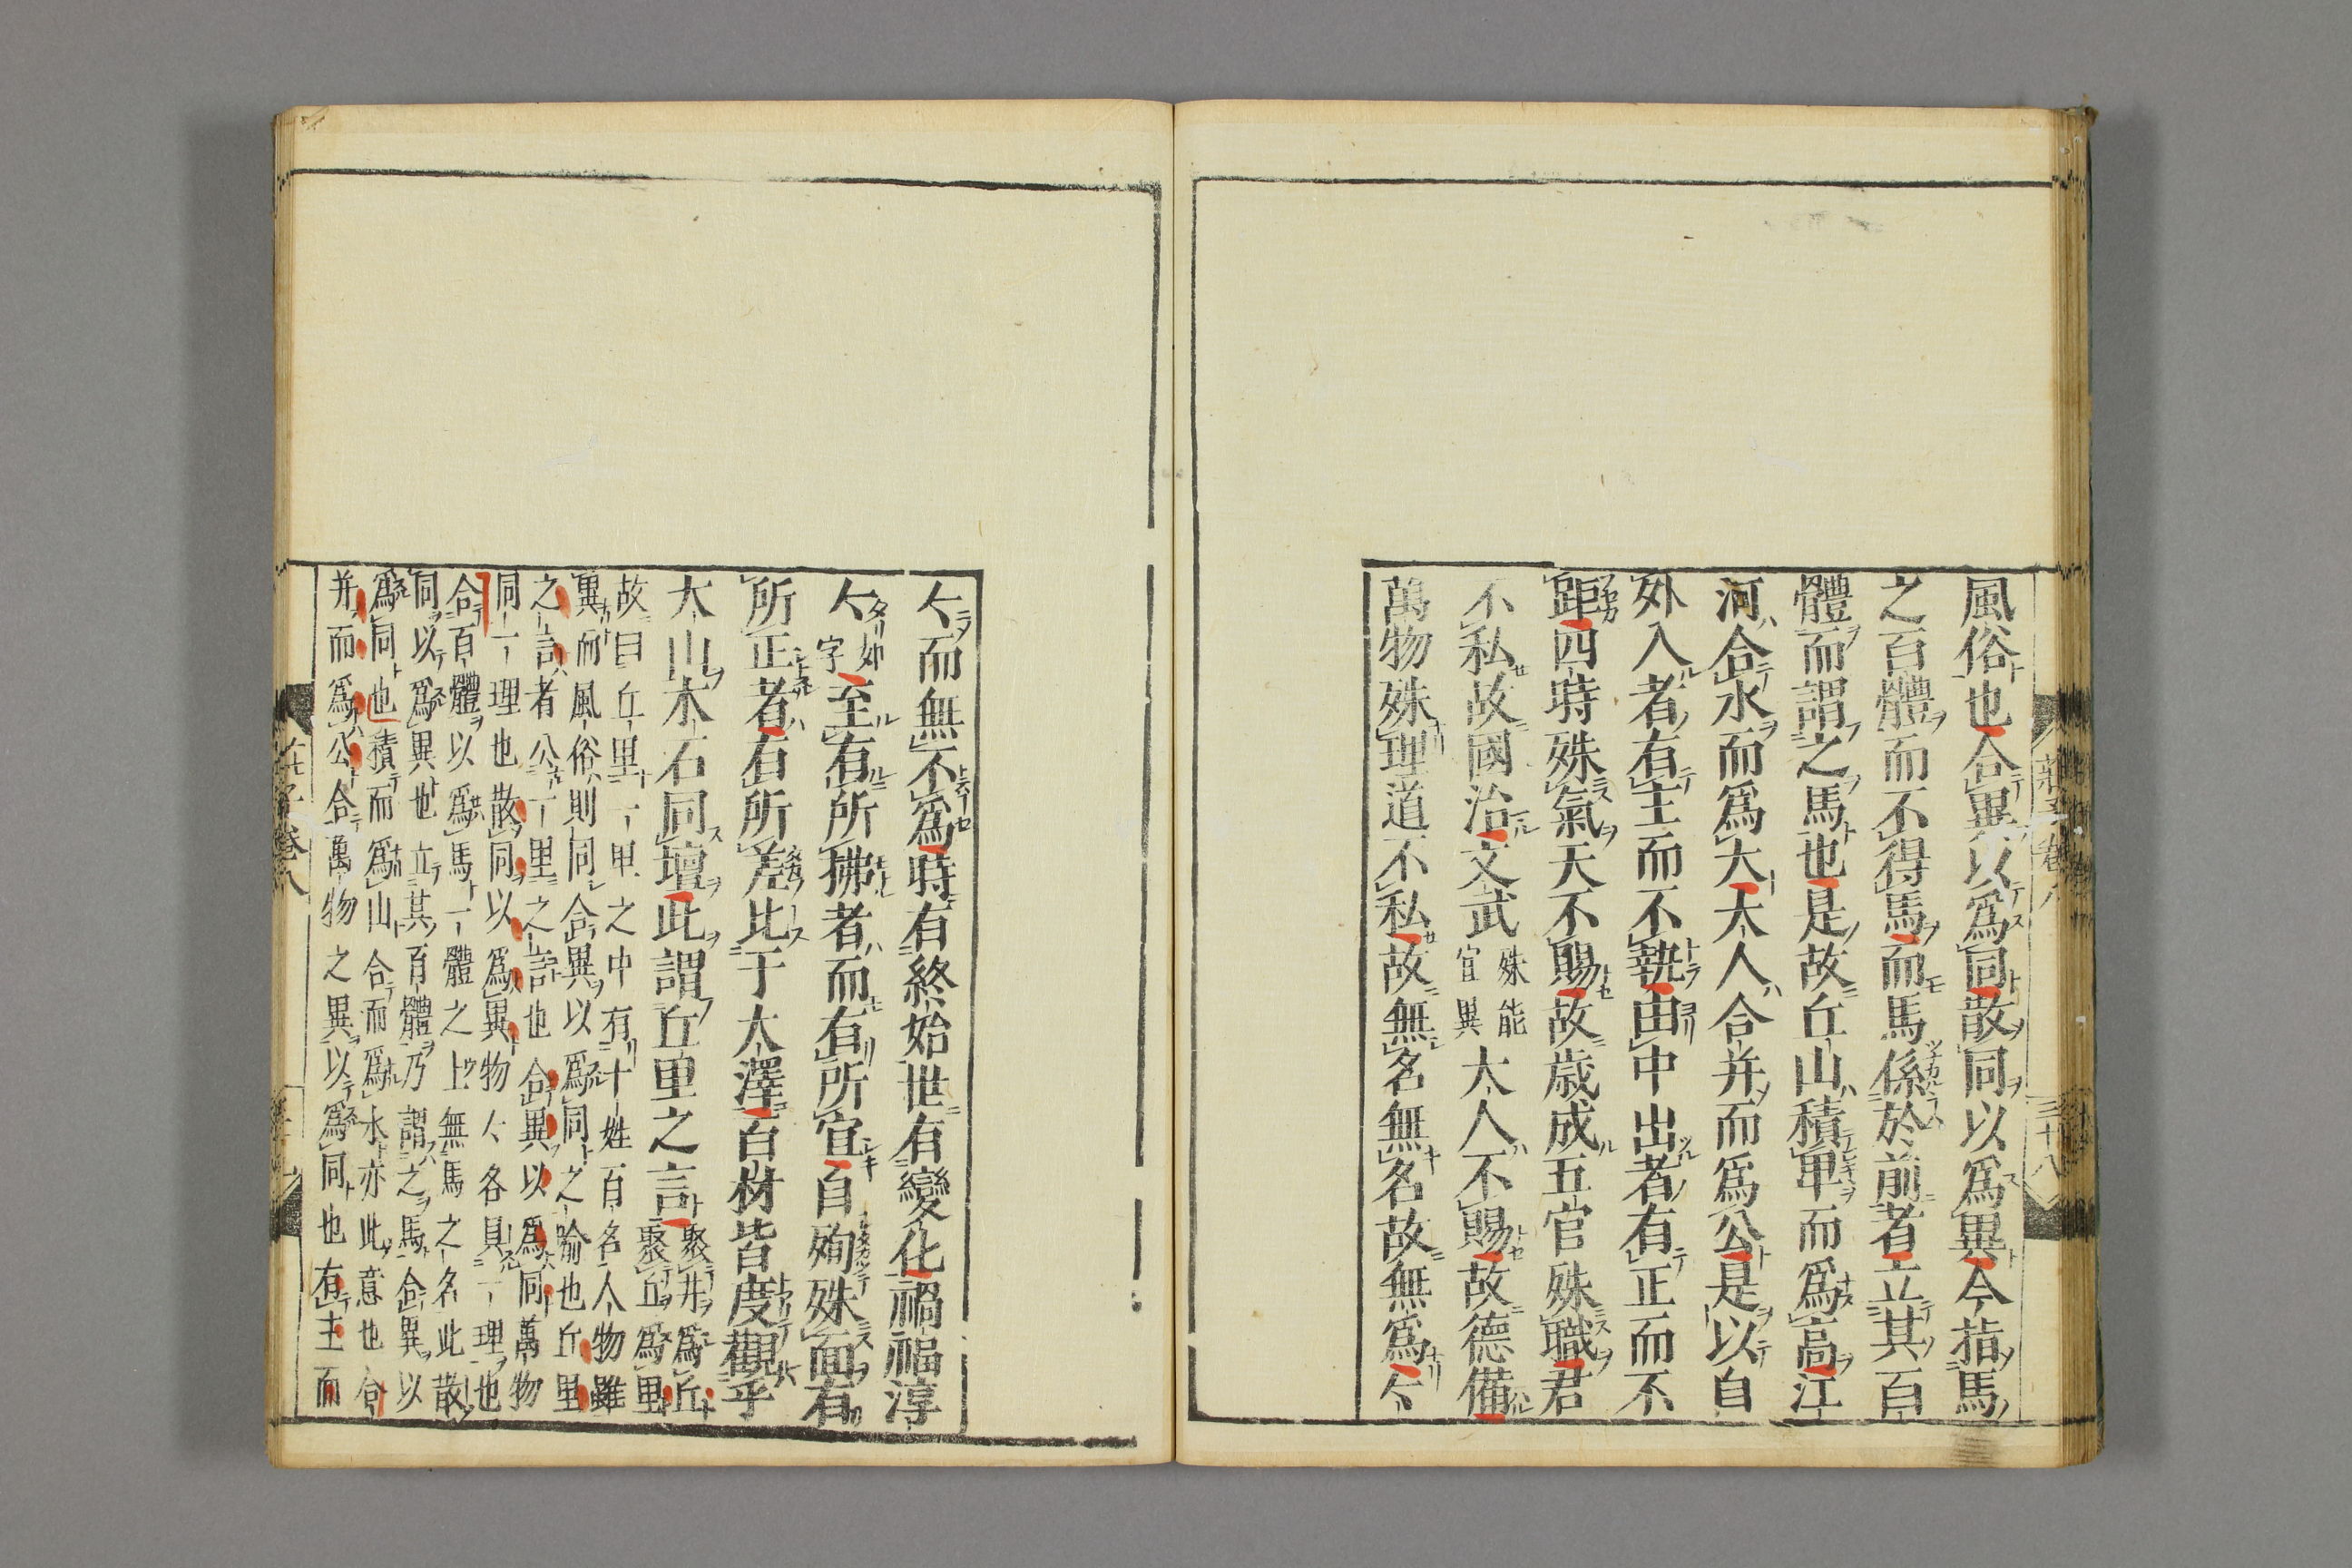 風俗也合異以爲同散同以爲異今指馬
之百體而不得馬而馬係於前者立其百
體而謂之馬也是故丘山積卑而爲高江
河合水而爲大大人合并而爲公是以自
外入者有主而不執由中出者有正而不
距四時殊氣天不賜故歲成五官殊職君
不私故國治文武殊能宜異大人不賜故德備
萬物殊理道不私故無名無名故無爲〻
〻而無不爲時有終始世有變化禍福淳
〻如字至有所拂者而有所宜自殉殊面有
所正者有所差比于大澤百材皆度觀乎
大山木石同壇此謂丘里之言聚井爲丘聚丘爲里
故曰丘里一里之中有十姓百名人物雖
異而風俗則同合異以爲同之喻也丘里
之言者公一里之言也合異以爲同萬物
同一理也散同以爲異物〻各具一理也
合百體以爲馬一體之上無馬之名此散
同以爲異也立其百體乃謂之馬合異以
爲同也積而爲山合而爲水亦此意也合
并而爲公合萬物之異以爲同也有主而
莊子卷八